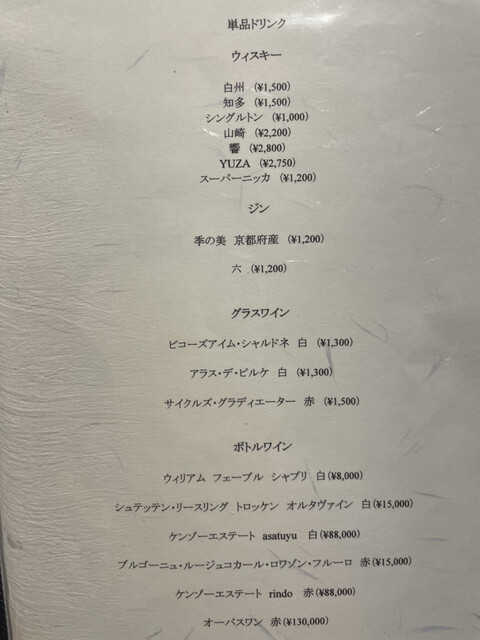 単品ドリンク
ウィスキー
白州 (¥1,500)
知多 (¥1,500)
シングルトン (¥1,000)
山崎 (¥2,200)
響 (¥2,800)
YUZA (¥2,750)
スーパーニッカ (¥1,200)
ジン
季の美 京都府産 (¥1,200)
六 (¥1,200)
グラスワイン
ビコーズアイム・シャルドネ 白 (¥1,300)
アラス・デ・ピルケ 白 (¥1,300)
サイクルズ・グラディエーター 赤 (¥1,500)
ボトルワイン
ウィリアム フェーブル シャブリ 白(¥8,000)
シュテッテン・リースリング トロッケン オルタヴァイン 白(¥15,000)
ケンゾーエステート asatuyu 白(¥88,000)
ブルゴーニュ・ルージュコカール・ロワゾン・フルーロ 赤(¥15,000)
ケンゾーエステート rindo 赤(¥88,000)
オーパスワン 赤(¥130,000)